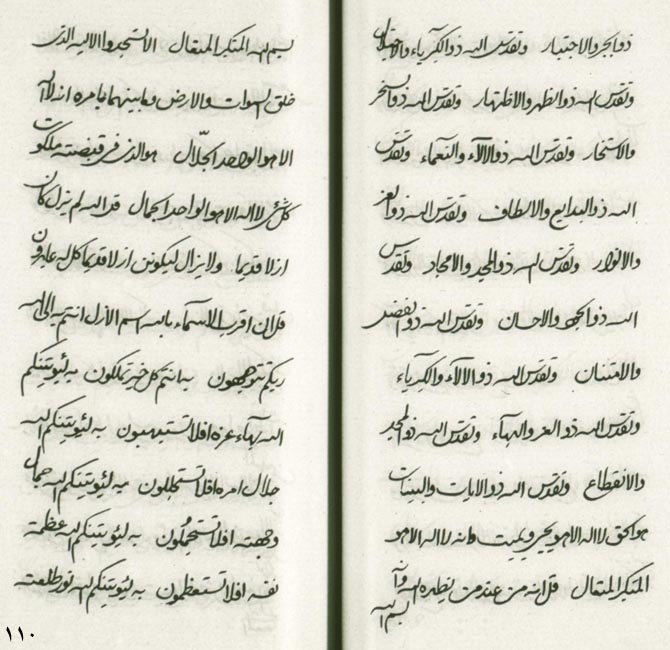 ذو الجبر والاجتبار وتقدس الله ذو الكبرياء والاجتلال
وتقدس الله ذو الظهر والاظتهار وتقدس الله ذو السخر
والاستخار وتقدس الله ذو الالاء والنعماء وتقدس
الله ذو البدايع والالطاف وتقدس الله ذو العز
والانوار وتقدس الله ذو المجد والامجاد وتقدس
الله ذو البهج والاحسان وتقدس الله ذو الفضل
والامتنان وتقدس الله ذو الالاء والكبرياء
وتقدس الله ذو العز والبهاء وتقدس الله ذو المجد
والانقطاع وتقدس الله ذو الايات والبينات
هو الحق لا اله الا هو يحيي ويميت وانه لا اله الا هو
المتكبر المتعال قل انه من عند من يظهره الله وانه
بسم الله
بسم الله المتكبر المتعال الا تسجدوا الا لله الذي
خلق السموات والارض وما بينهما بامره انه لا اله
الا هو الواحد الجلال هو الذي في قبضته ملكوت
كل شئ لا اله الا هو الواحد الجمال قل الله لم يزل كان
ازلا قديما ولا يزال ليكونن ازلا قديما كل له عابدون
قل ان اقرب الاسماء بالله اسم الازل انتم به الى الله
ربكم تتوجهون به انتم كل خير تملكون به ليؤتينكم
الله بهاء عزه افلا تستبهيون به ليؤتينكم الله
جلال امره افلا تستجللون به ليؤتينكم الله جمال
وجهته افلا تستجملون به ليؤتينكم الله عظمة
نفسه افلا تستعظمون به ليؤتينكم الله نور طلعته
١١٠